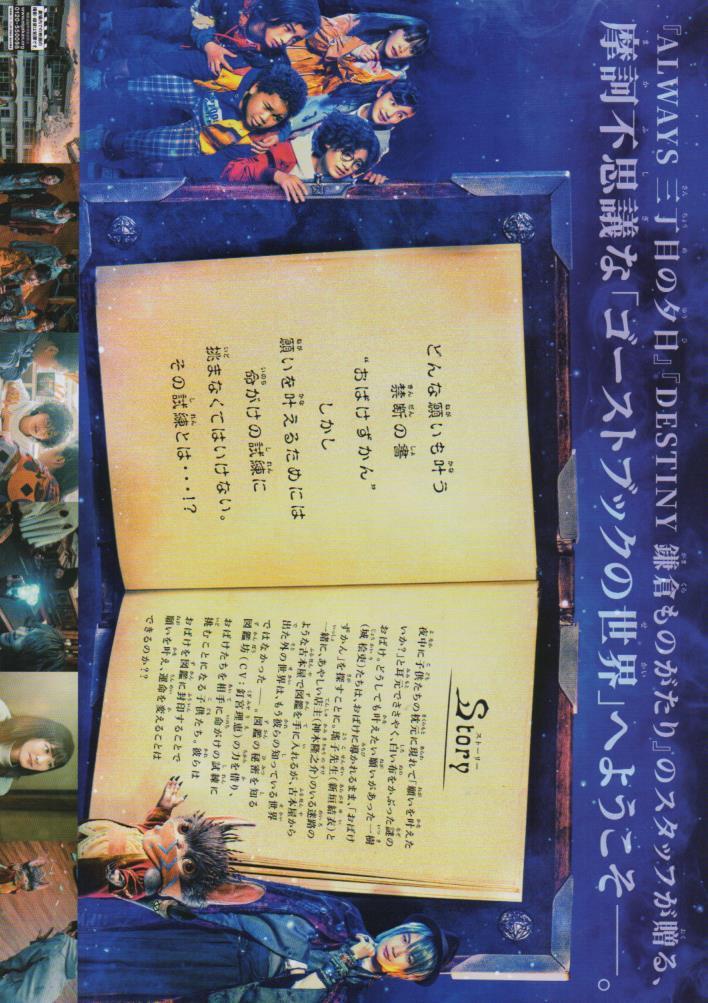 『ALWAYS 三丁目の夕日』『DESTINY 鎌倉ものがたり』のスタッフが贈る、
摩訶不思議な「ゴーストブックの世界」へようこそ——。
どんな願いも叶う
禁断の書
“おばけずかん”
しかし
願いを叶えるためには
命がけの試練に
挑まなくてはいけない。
その試練とは・・・!?
Story
ストーリー
夜中に子供たちの枕元に現れて「願いを叶えた
いか？」と耳元でささやく、白い布をかぶった謎の
おばけ。どうしても叶えたい願いがあった一樹
(城桧吏)たちは、おばけに導かれるまま、「おばけ
ずかん」を探すことに。瑤子先生(新垣結衣)と
一緒に、あやしい店主(神木隆之介)のいる迷路の
ような古本屋で図鑑を手に入れるが、古本屋から
出た外の世界は、もう彼らの知っている世界
ではなかった——。図鑑の秘密を知る
図鑑坊(CV:釘宮理恵)の力を借り、
おばけたちを相手に命がけの試練に
挑むことになる子供たち。彼らは
おばけを図鑑に封印することで
願いを叶え、運命を変えることは
できるのか？？
0120-550098